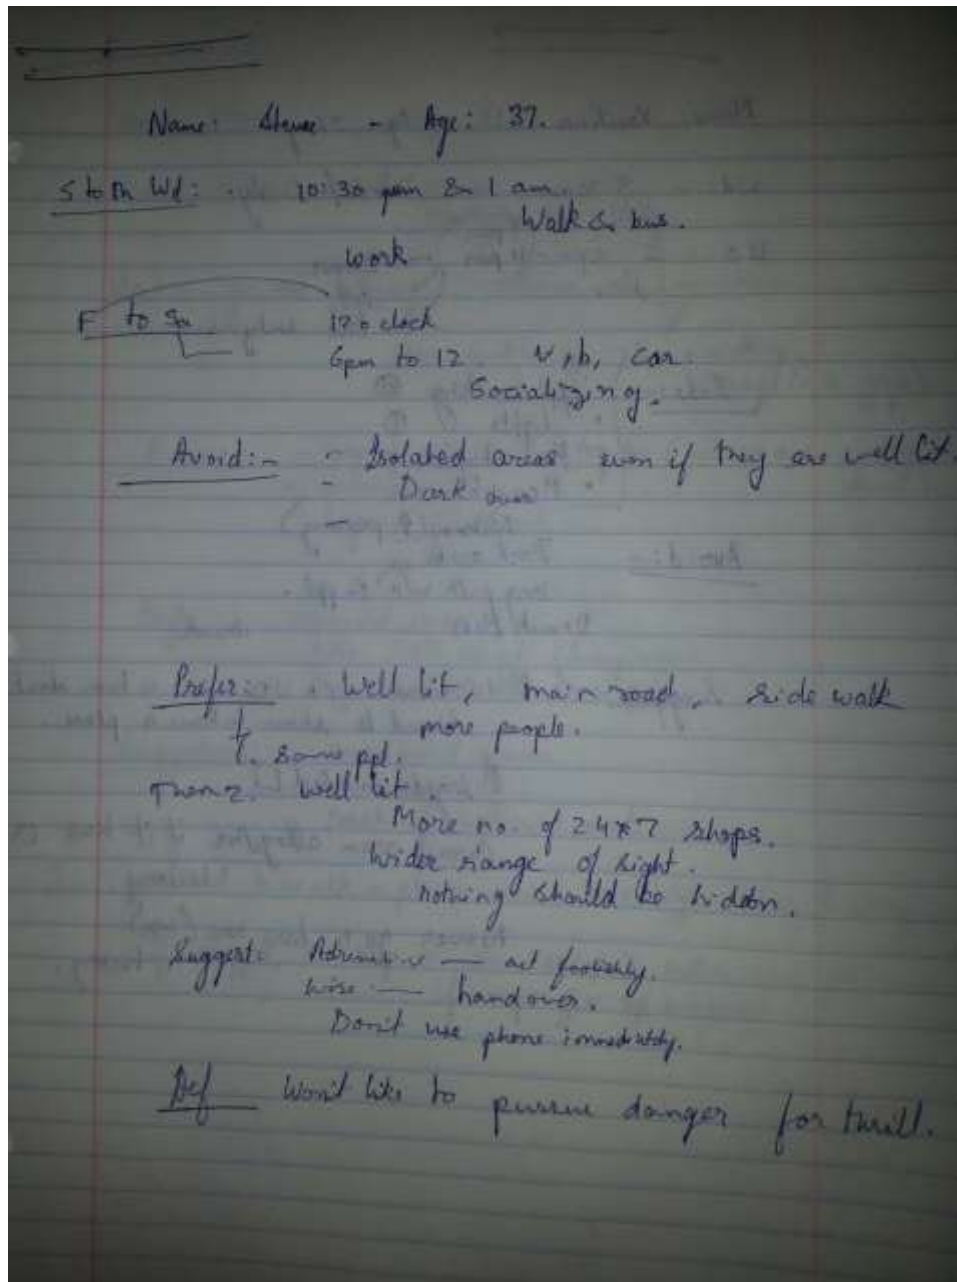 Name: Steve - Age: 37.
S to Th Wd: 10:30 pm & 1 am
Walk & bus.
Work
F to Sa 12 o clock
6pm to 12. w, b, car.
Socializing.
Avoid:- - Isolated areas even if they are well lit.
- Dark
Prefer:- Well lit, main road, side walk
more people.
1. some ppl.
Then 2. Well lit.
More no. of 24*7 shops.
Wider range of sight.
nothing should be hidden.
Suggest: — act foolishly.
wise — handover.
Don't use phone immediately.
Def Won't like to pursue danger for thrill.